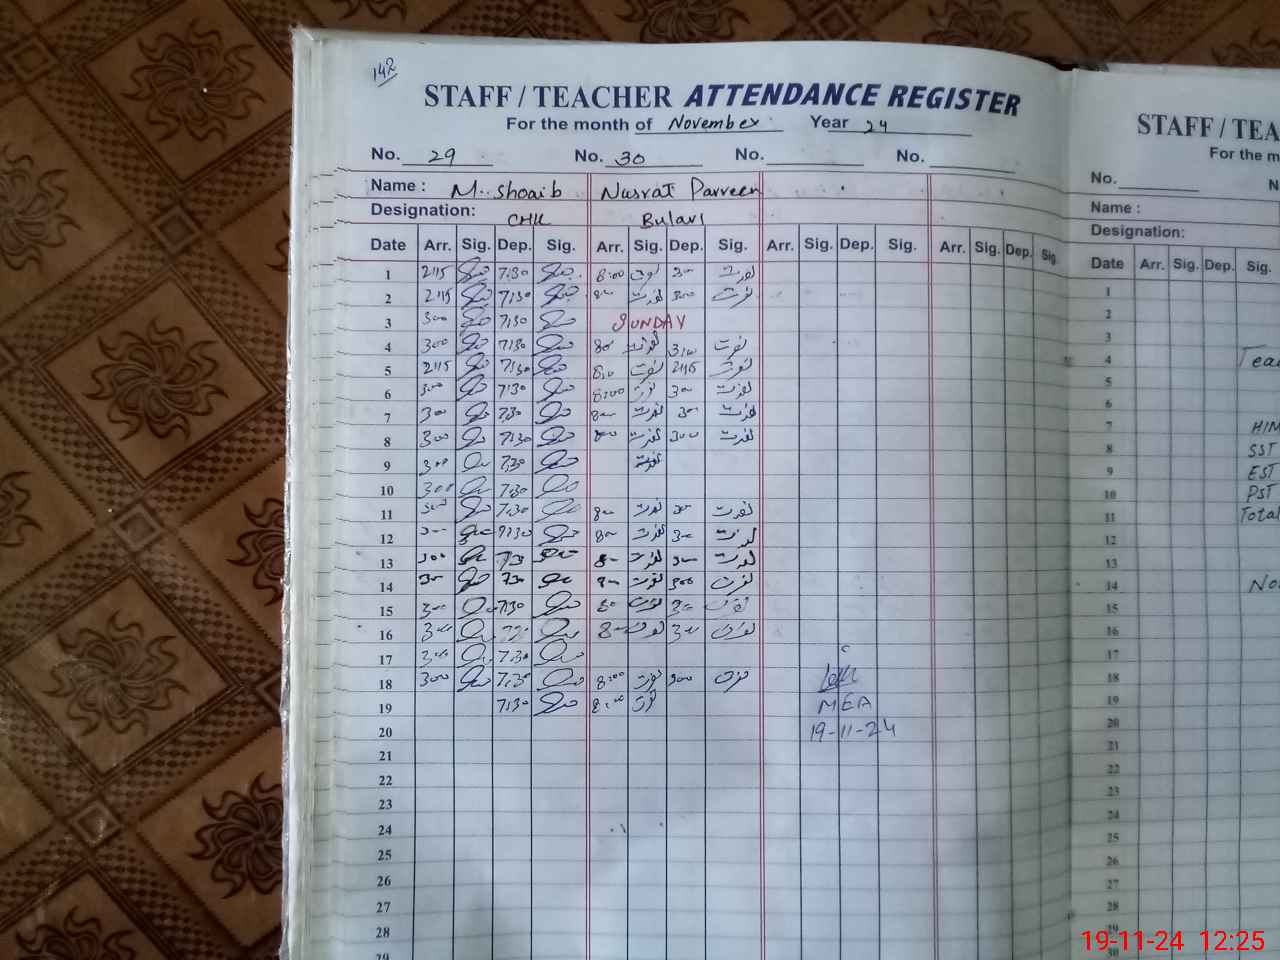 142
STAFF / TEACHER ATTENDANCE REGISTER
For the month of November Year 24
No. 29 No. 30 No. No.
Name : M. Shoaib Nusrat Parveen
Designation: CHK Bulavi
Date Arr. Sig. Dep. Sig. Arr. Sig. Dep. Sig. Arr. Sig. Dep. Sig. Arr. Sig. Dep. Sig.
1 2:15 7:30 8:00 نصرت 300 نصرت
2 2:15 7:30 800 نصرت 300 نصرت
3 300 7:30 SUNDAY
4 300 7:30 800 نصرت 300 نصرت
5 2:15 7:30 800 نصرت 2:15 نصرت
6 300 7:30 8:00 نصرت 300 نصرت
7 300 7:30 800 نصرت 300 نصرت
8 300 7:30 800 نصرت 300 نصرت
9 300 7:30 نصرت
10 300 7:30
11 300 7:30 800 نصرت 300 نصرت
12 300 7:30 800 نصرت 300 نصرت
13 300 7:30 800 نصرت 300 نصرت
14 300 7:30 800 نصرت 300 نصرت
15 300 7:30 800 نصرت 300 نصرت
16 300 7:30 800 نصرت 300 نصرت
17 300 7:30
18 300 7:30 8:00 نصرت 300 نصرت
19 7:30 8:00 نصرت MEA
20 19-11-24
21
22
23
24
25
26
27
28
29
STAFF / TEA
For the m
No. N
Name :
Designation:
Date Arr. Sig. Dep. Sig.
1
2
3
4 Tea
5
6
7 HM
8 SST
9 EST
10 PST
11 Total
12
13
14 No
15
16
17
18
19
20
21
22
23
24
25
26
27
28
29
30
19-11-24 12:25